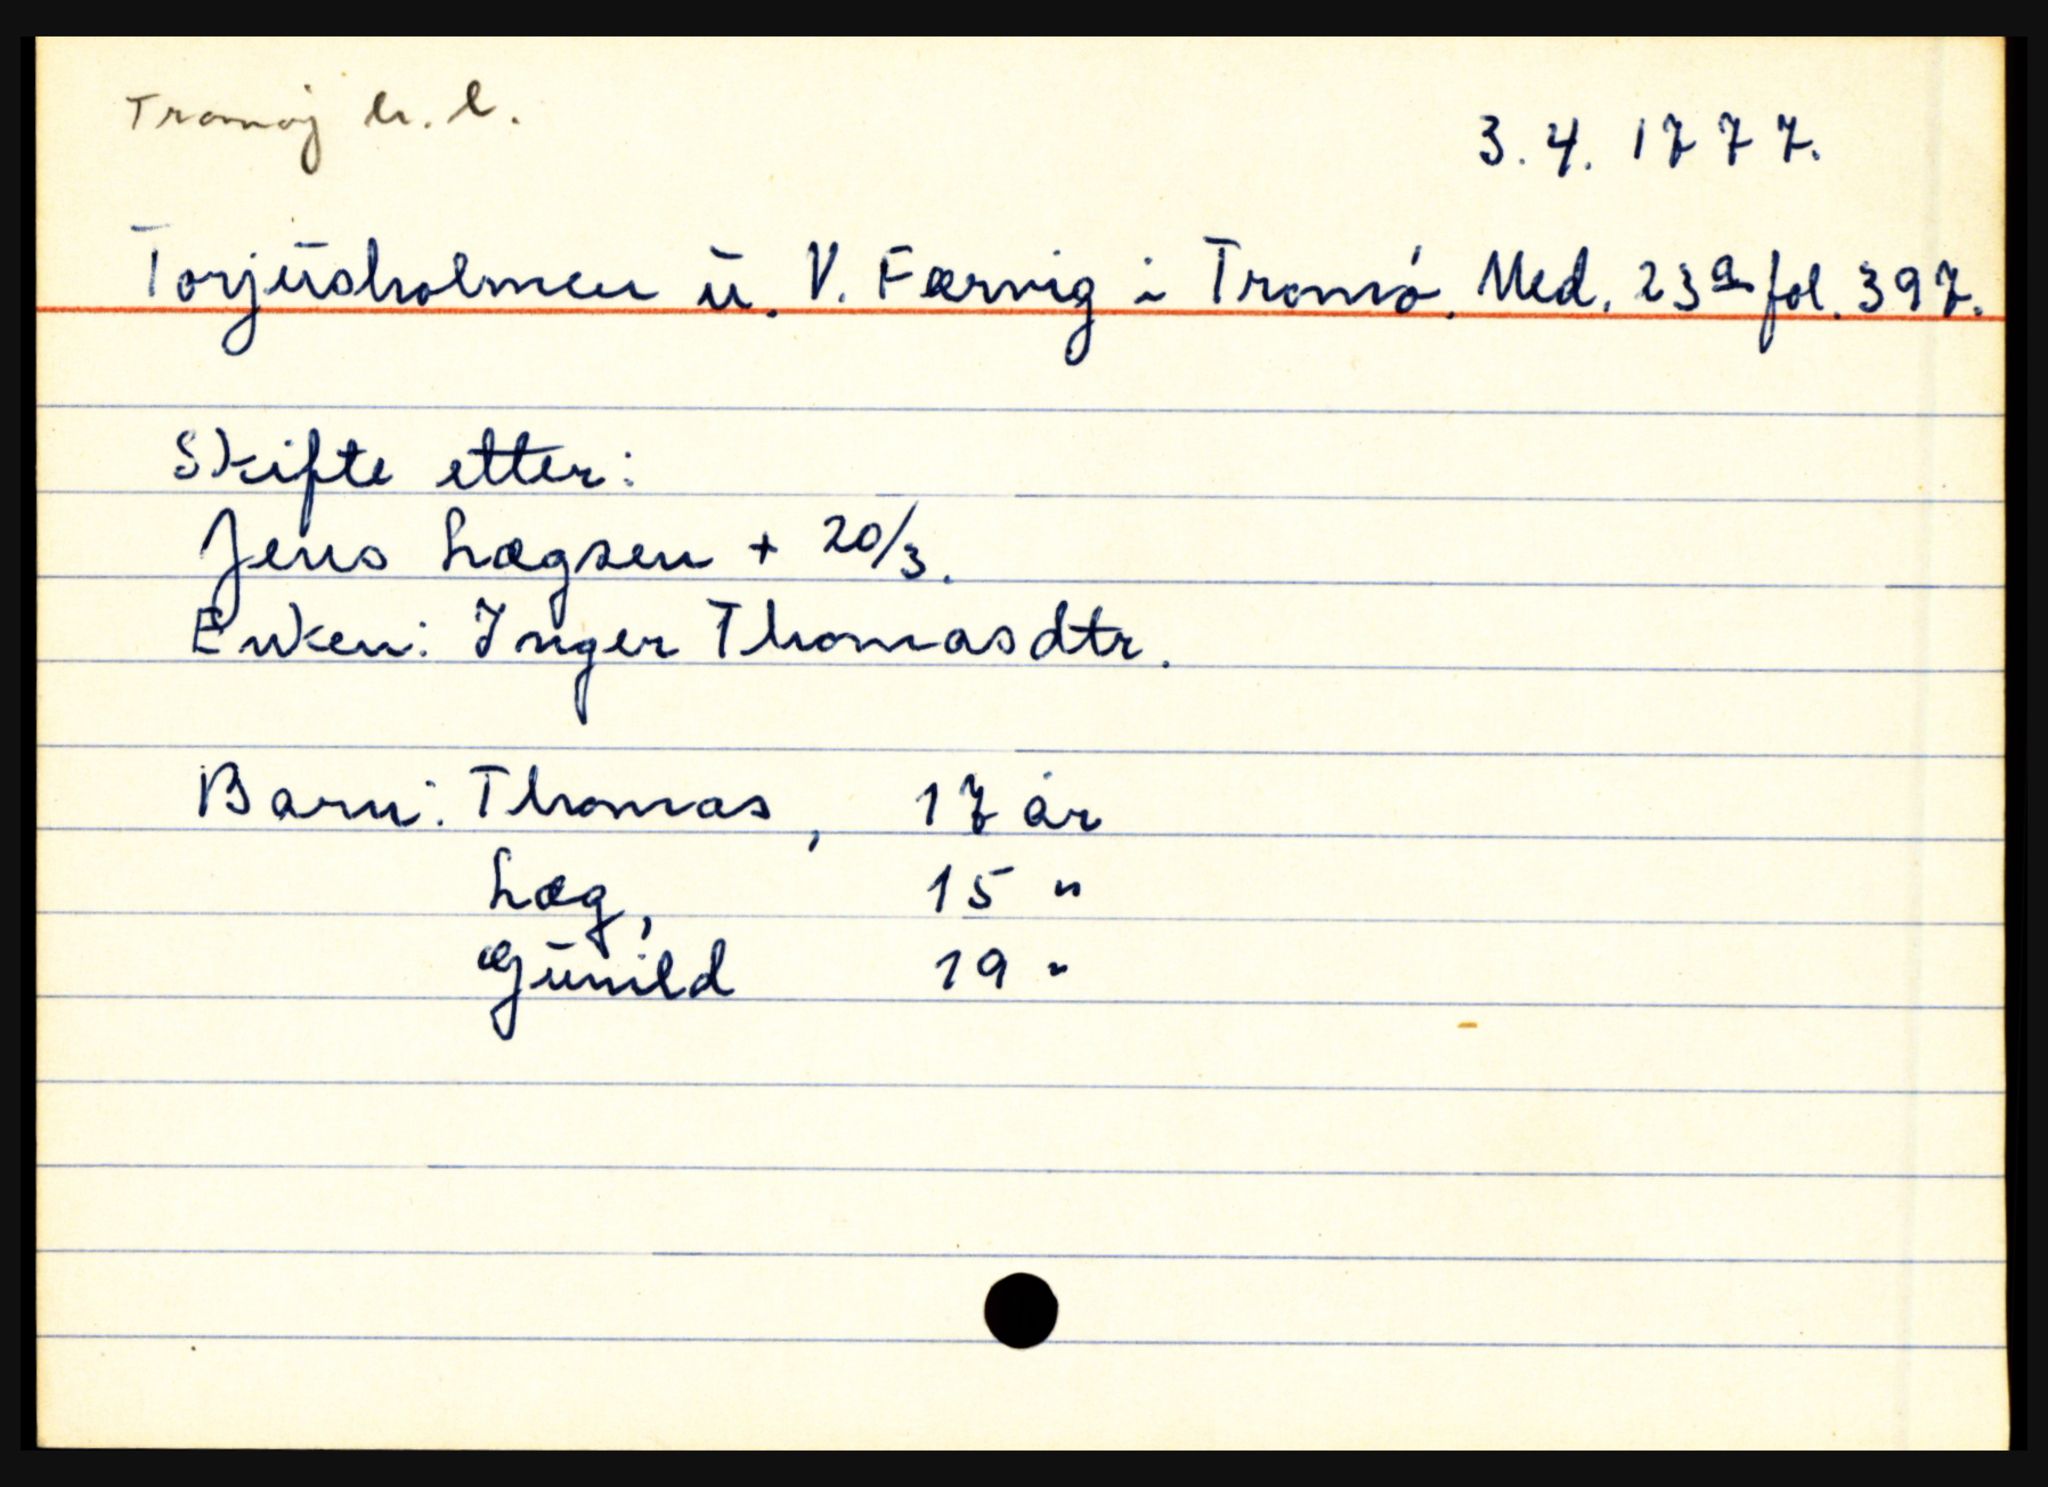 Tromøy h.l.
3.4.1777.
Torjusholmen u. V. Færvig i Tromø. Ned. 23a fol. 397.
Skifte etter:
Jens Lægsen + 20/3.
Enken: Inger Thomasdtr.
Barn: Thomas, 17 år
Læg, 15 "
Gunild 19 "